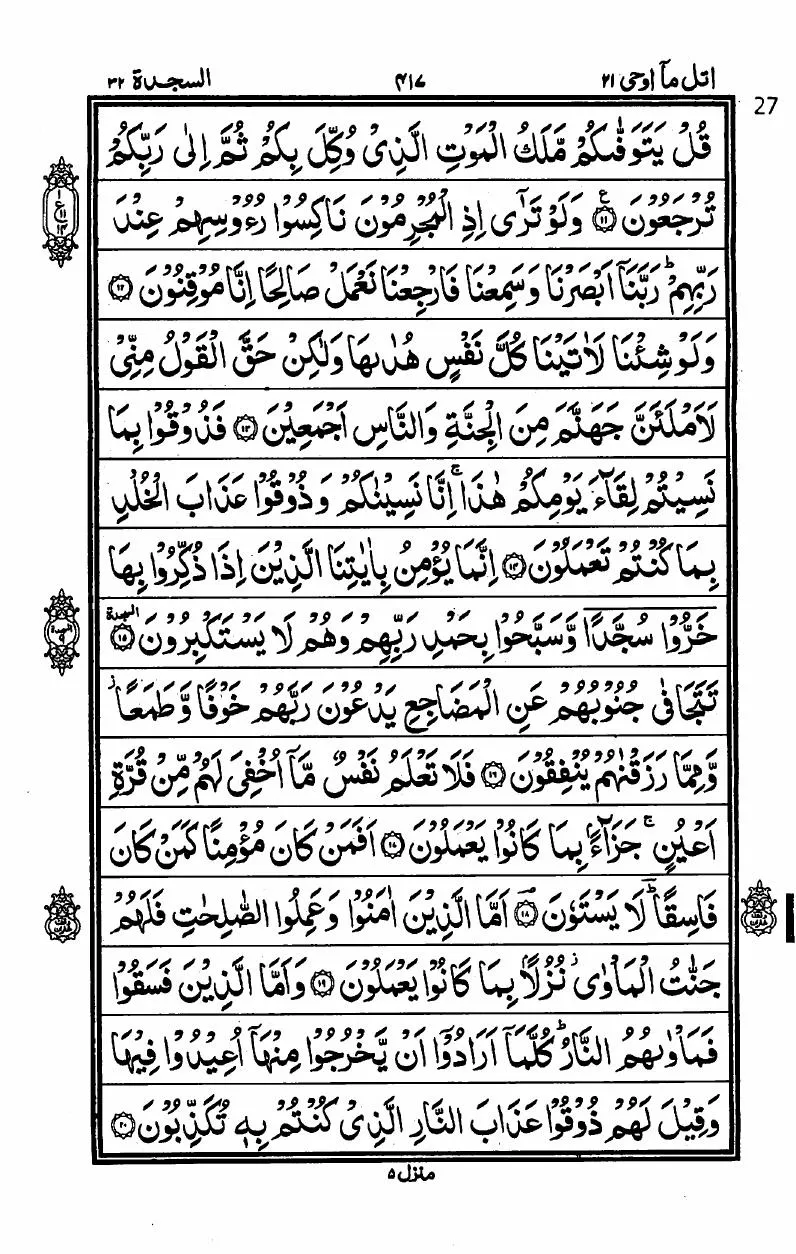 اتل مآ اوحی ۲۱
۴۱۷
السجدة ۳۲
27
قُلْ يَتَوَفّٰىكُمْ مَّلَكُ الْمَوْتِ الَّذِیْ وُكِّلَ بِكُمْ ثُمَّ اِلٰی رَبِّكُمْ
تُرْجَعُوْنَ ۝۱۱ وَلَوْ تَرٰۤی اِذِ الْمُجْرِمُوْنَ نَاكِسُوْا رُءُوْسِهِمْ عِنْدَ
رَبِّهِمْ ؕ رَبَّنَاۤ اَبْصَرْنَا وَسَمِعْنَا فَارْجِعْنَا نَعْمَلْ صَالِحًا اِنَّا مُوْقِنُوْنَ ۝۱۲
وَلَوْ شِئْنَا لَاٰتَيْنَا كُلَّ نَفْسٍ هُدٰىهَا وَلٰكِنْ حَقَّ الْقَوْلُ مِنِّیْ
لَاَمْلَئَنَّ جَهَنَّمَ مِنَ الْجِنَّةِ وَالنَّاسِ اَجْمَعِيْنَ ۝۱۳ فَذُوْقُوْا بِمَا
نَسِيْتُمْ لِقَآءَ يَوْمِكُمْ هٰذَا ۚ اِنَّا نَسِيْنٰكُمْ وَذُوْقُوْا عَذَابَ الْخُلْدِ
بِمَا كُنْتُمْ تَعْمَلُوْنَ ۝۱۴ اِنَّمَا يُؤْمِنُ بِاٰيٰتِنَا الَّذِيْنَ اِذَا ذُكِّرُوْا بِهَا
خَرُّوْا سُجَّدًا وَّسَبَّحُوْا بِحَمْدِ رَبِّهِمْ وَهُمْ لَا يَسْتَكْبِرُوْنَ ۝۱۵ السجدة
تَتَجَافٰی جُنُوْبُهُمْ عَنِ الْمَضَاجِعِ يَدْعُوْنَ رَبَّهُمْ خَوْفًا وَّطَمَعًا ؗ
وَّمِمَّا رَزَقْنٰهُمْ يُنْفِقُوْنَ ۝۱۶ فَلَا تَعْلَمُ نَفْسٌ مَّاۤ اُخْفِیَ لَهُمْ مِّنْ قُرَّةِ
اَعْيُنٍ ۚ جَزَآءًۢ بِمَا كَانُوْا يَعْمَلُوْنَ ۝۱۷ اَفَمَنْ كَانَ مُؤْمِنًا كَمَنْ كَانَ
فَاسِقًا ؕ لَا يَسْتَوٗنَ ۝۱۸ اَمَّا الَّذِيْنَ اٰمَنُوْا وَعَمِلُوا الصّٰلِحٰتِ فَلَهُمْ
جَنّٰتُ الْمَاْوٰی ؗ نُزُلًۢا بِمَا كَانُوْا يَعْمَلُوْنَ ۝۱۹ وَاَمَّا الَّذِيْنَ فَسَقُوْا
فَمَاْوٰىهُمُ النَّارُ ؕ كُلَّمَاۤ اَرَادُوْۤا اَنْ يَّخْرُجُوْا مِنْهَاۤ اُعِيْدُوْا فِيْهَا
وَقِيْلَ لَهُمْ ذُوْقُوْا عَذَابَ النَّارِ الَّذِیْ كُنْتُمْ بِهٖ تُكَذِّبُوْنَ ۝۲۰
منزل ۵